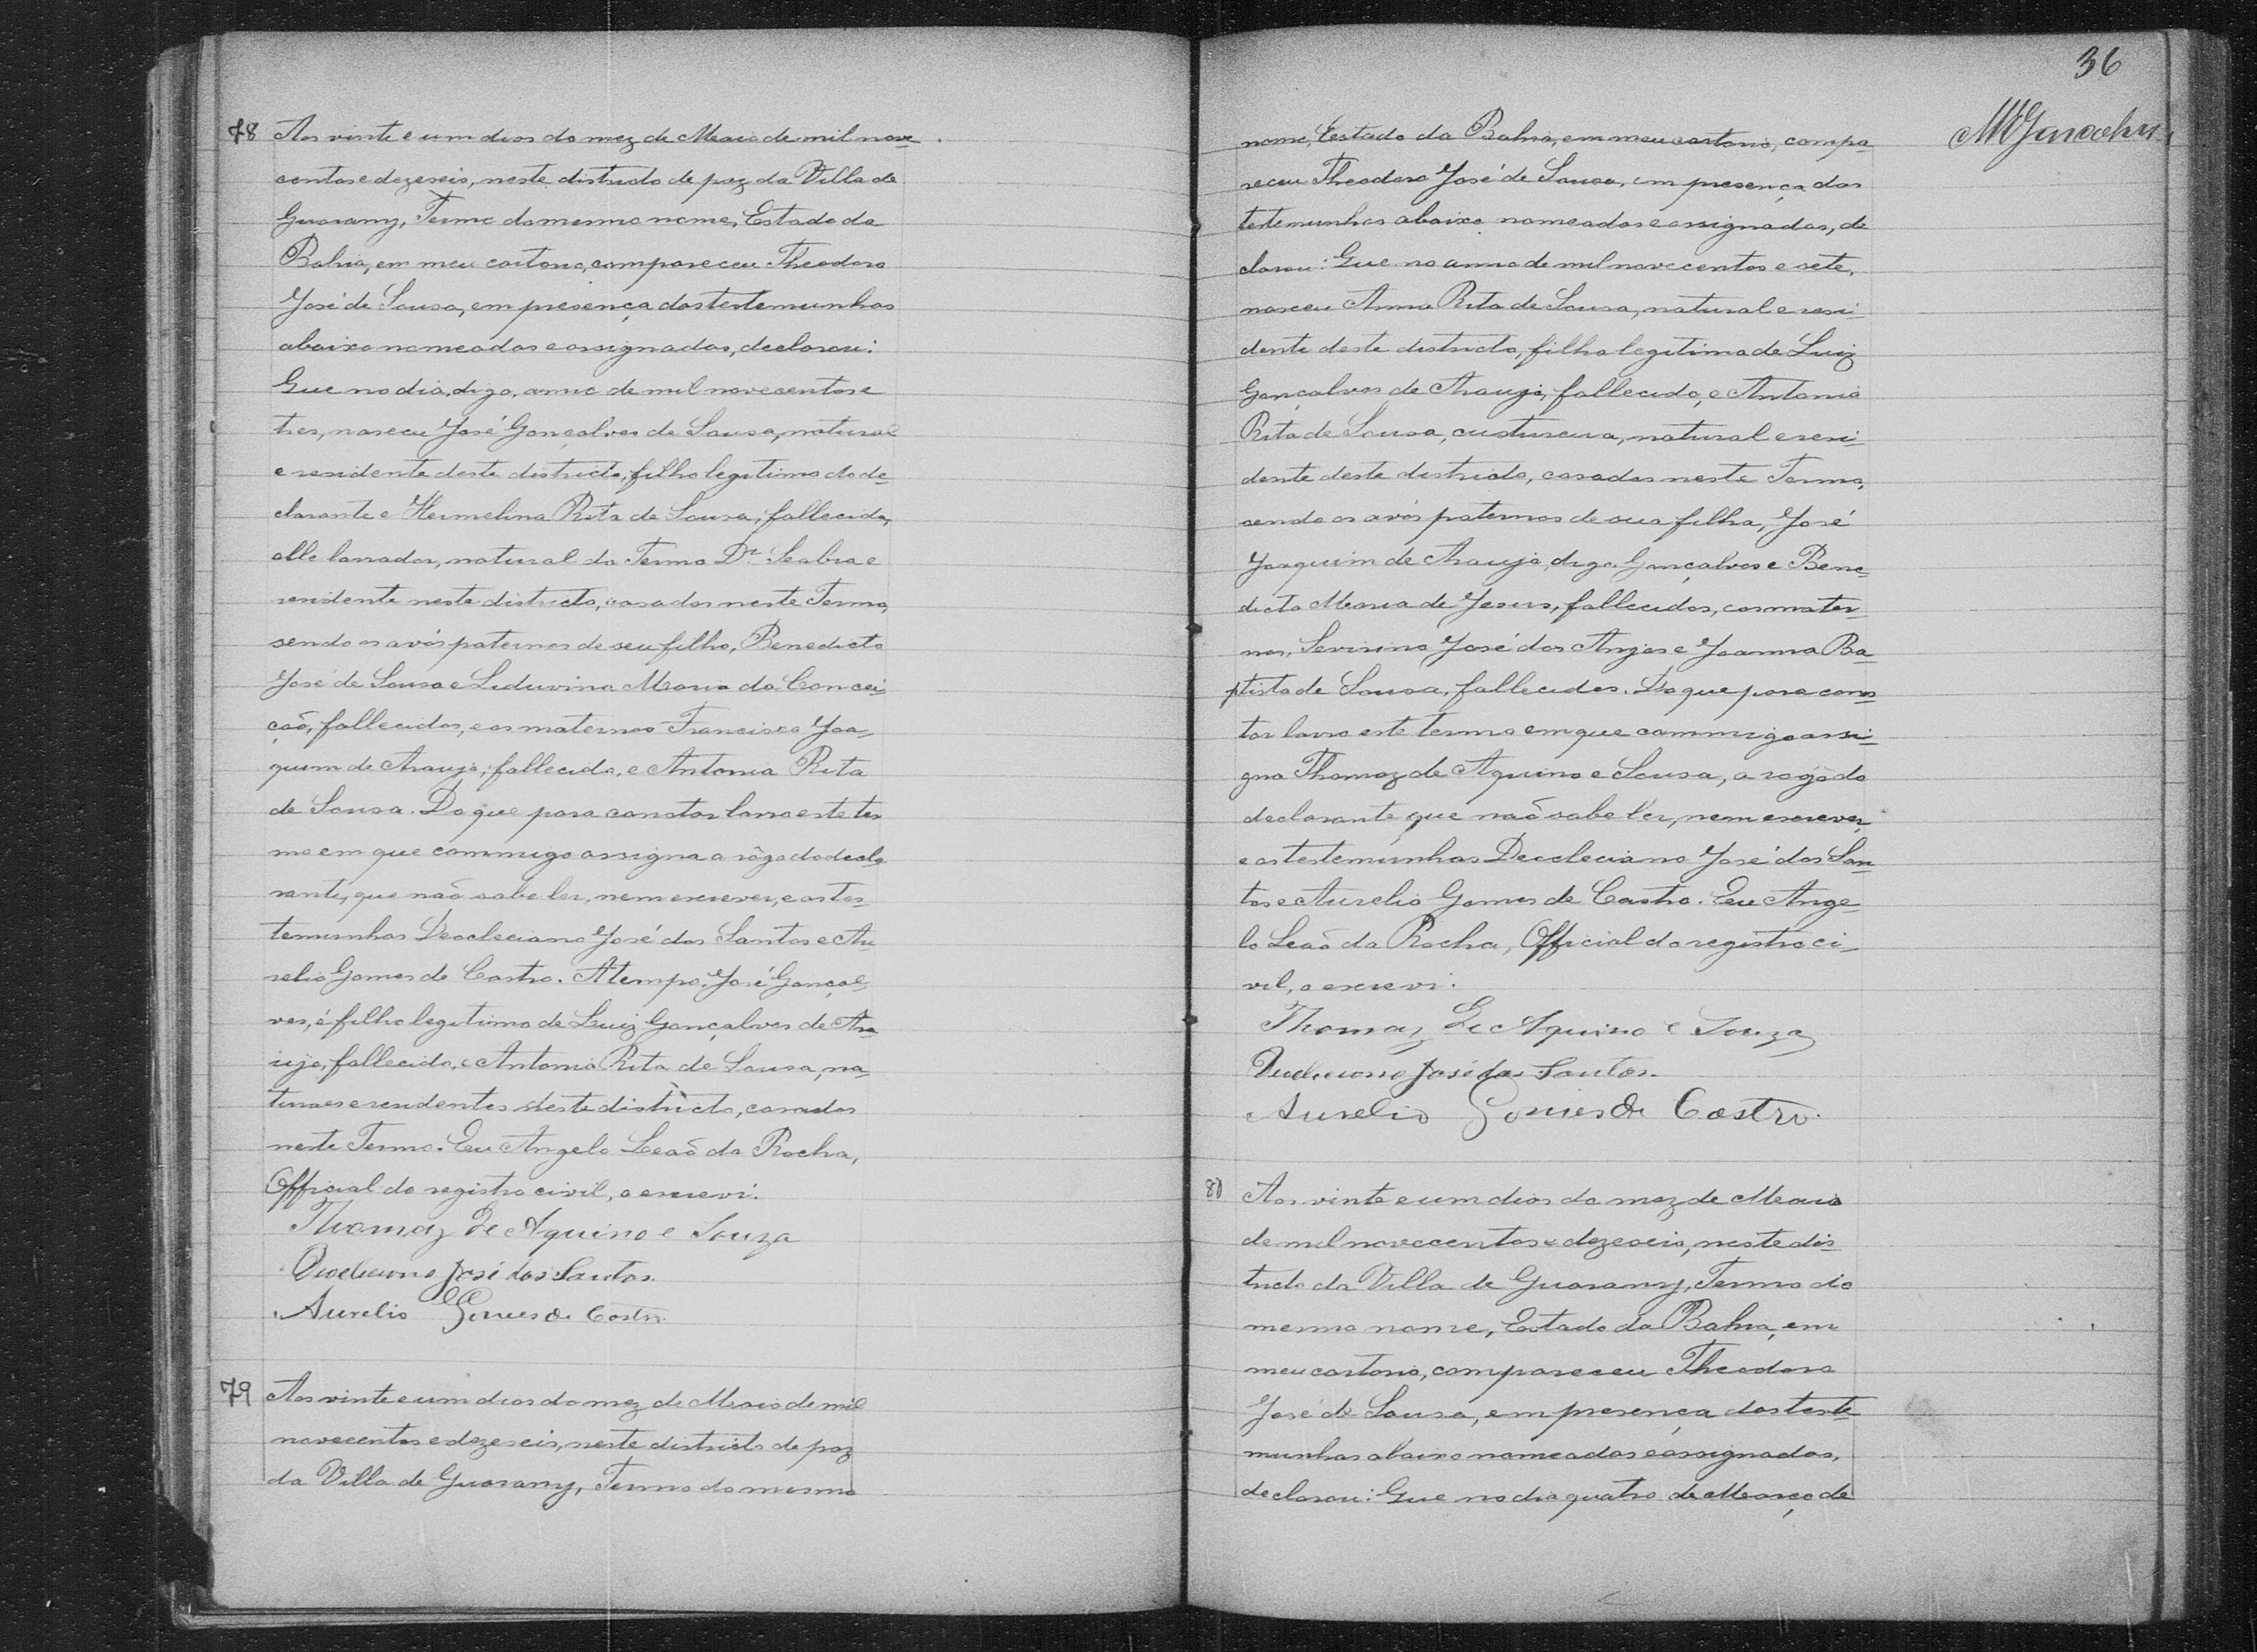 78 Aos vinte e um dias do mez de Maio de mil nove-
centos e dezeseis, neste districto de paz da Villa de
Guarany, Termo do mesmo nome, Estado da
Bahia, em meu cartorio, compareceu Theodoro
José de Sousa, em presença das testemunhas
abaixo nomeadas e assignadas, declarou:
Que no dia, digo, anno de mil novecentos e
tres, nasceu José Gonçalves de Sousa, natural
e residente deste districto, filho legitimo do de-
clarante e Hermelina Rita de Sousa, fallecida,
elle lavrador, natural do Termo Dr. Seabra e
residente neste districto, casados neste Termo,
sendo os avós paternos de seu filho, Benedicto
José de Sousa e Liduvina Maria da Concei-
ção, fallecidos, e os maternos Francisco Joa-
quim de Araujo, fallecido, e Antonia Rita
de Sousa. Do que para constar lavro este ter-
mo em que commigo assigna a rôgo do decla-
rante, que não sabe ler, nem escrever, e as tes-
temunhas Deocleciano José dos Santos e Au-
relio Gomes de Castro. A tempo. José Gonçal-
ves, é filho legitimo de Luiz Gonçalves de Ara-
ujo, fallecido, e Antonia Rita de Sousa, na-
turaes e residentes deste districto, casados
neste Termo. Eu Angelo Leão da Rocha,
Official do registro civil, o escrevi.
Thomaz De Aquino e Souza
José dos Santos.
Aurelio Gomes de Castro.
79 Aos vinte e um dias do mez de Maio de mil
novecentos e dezeseis, neste districto de paz
da Villa de Guarany, Termo do mesmo
36
nome, Estado da Bahia, em meu cartorio, compa-
receu Theodoro José de Sousa, em presença das
testemunhas abaixo nomeadas e assignadas, de
clarou: Que no anno de mil novecentos e sete,
nasceu Anna Rita de Sousa, natural e resi-
dente deste districto, filha legitima de Luiz
Gonçalves de Araujo, fallecido, e Antonia
Rita de Sousa, custureira, natural e resi-
dente deste districto, casados neste Termo,
sendo os avós paternos de sua filha, José
Joaquim de Araujo, digo Gonçalves e Bene-
dicta Maria de Jesus, fallecidos, e os mater-
nos, Severino José dos Anjos e Joanna Ba-
ptista de Sousa, fallecidos. Do que para cons-
tar lavro este termo em que commigo assi-
gna Thomaz de Aquino e Sousa, a rogo do
declarante que não sabe lêr, nem escrever,
e as testemunhas Deocleciano José dos San-
tos e Aurelio Gomes de Castro. Eu Ange-
lo Leão da Rocha, Official do registro ci-
vil, o escrevi.
Thomaz De Aquino e Souza
José dos Santos.
Aurelio Gomes de Castro.
80 Aos vinte e um dias do mez de Maio
de mil novecentos e dezeseis, neste dis-
tricto da Villa de Guarany, Termo do
mesmo nome, Estado da Bahia, em
meu cartorio, compareceu Theodoro
José de Sousa, em presença das teste-
munhas abaixo nomeadas e assignadas,
declarou: Que no dia quatro de Março de